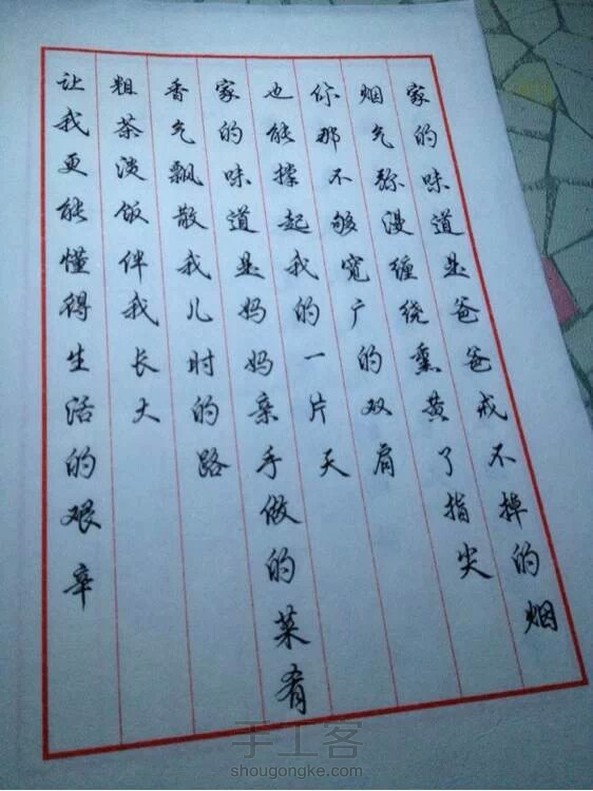 家的味道是爸爸戒不掉的烟
烟气弥漫缠绕熏黄了指尖
你那不够宽广的双肩
也能撑起我的一片天
家的味道是妈妈亲手做的菜肴
香气飘散我儿时的路
粗茶淡饭伴我长大
让我更能懂得生活的艰辛
手工客
shougongke.com